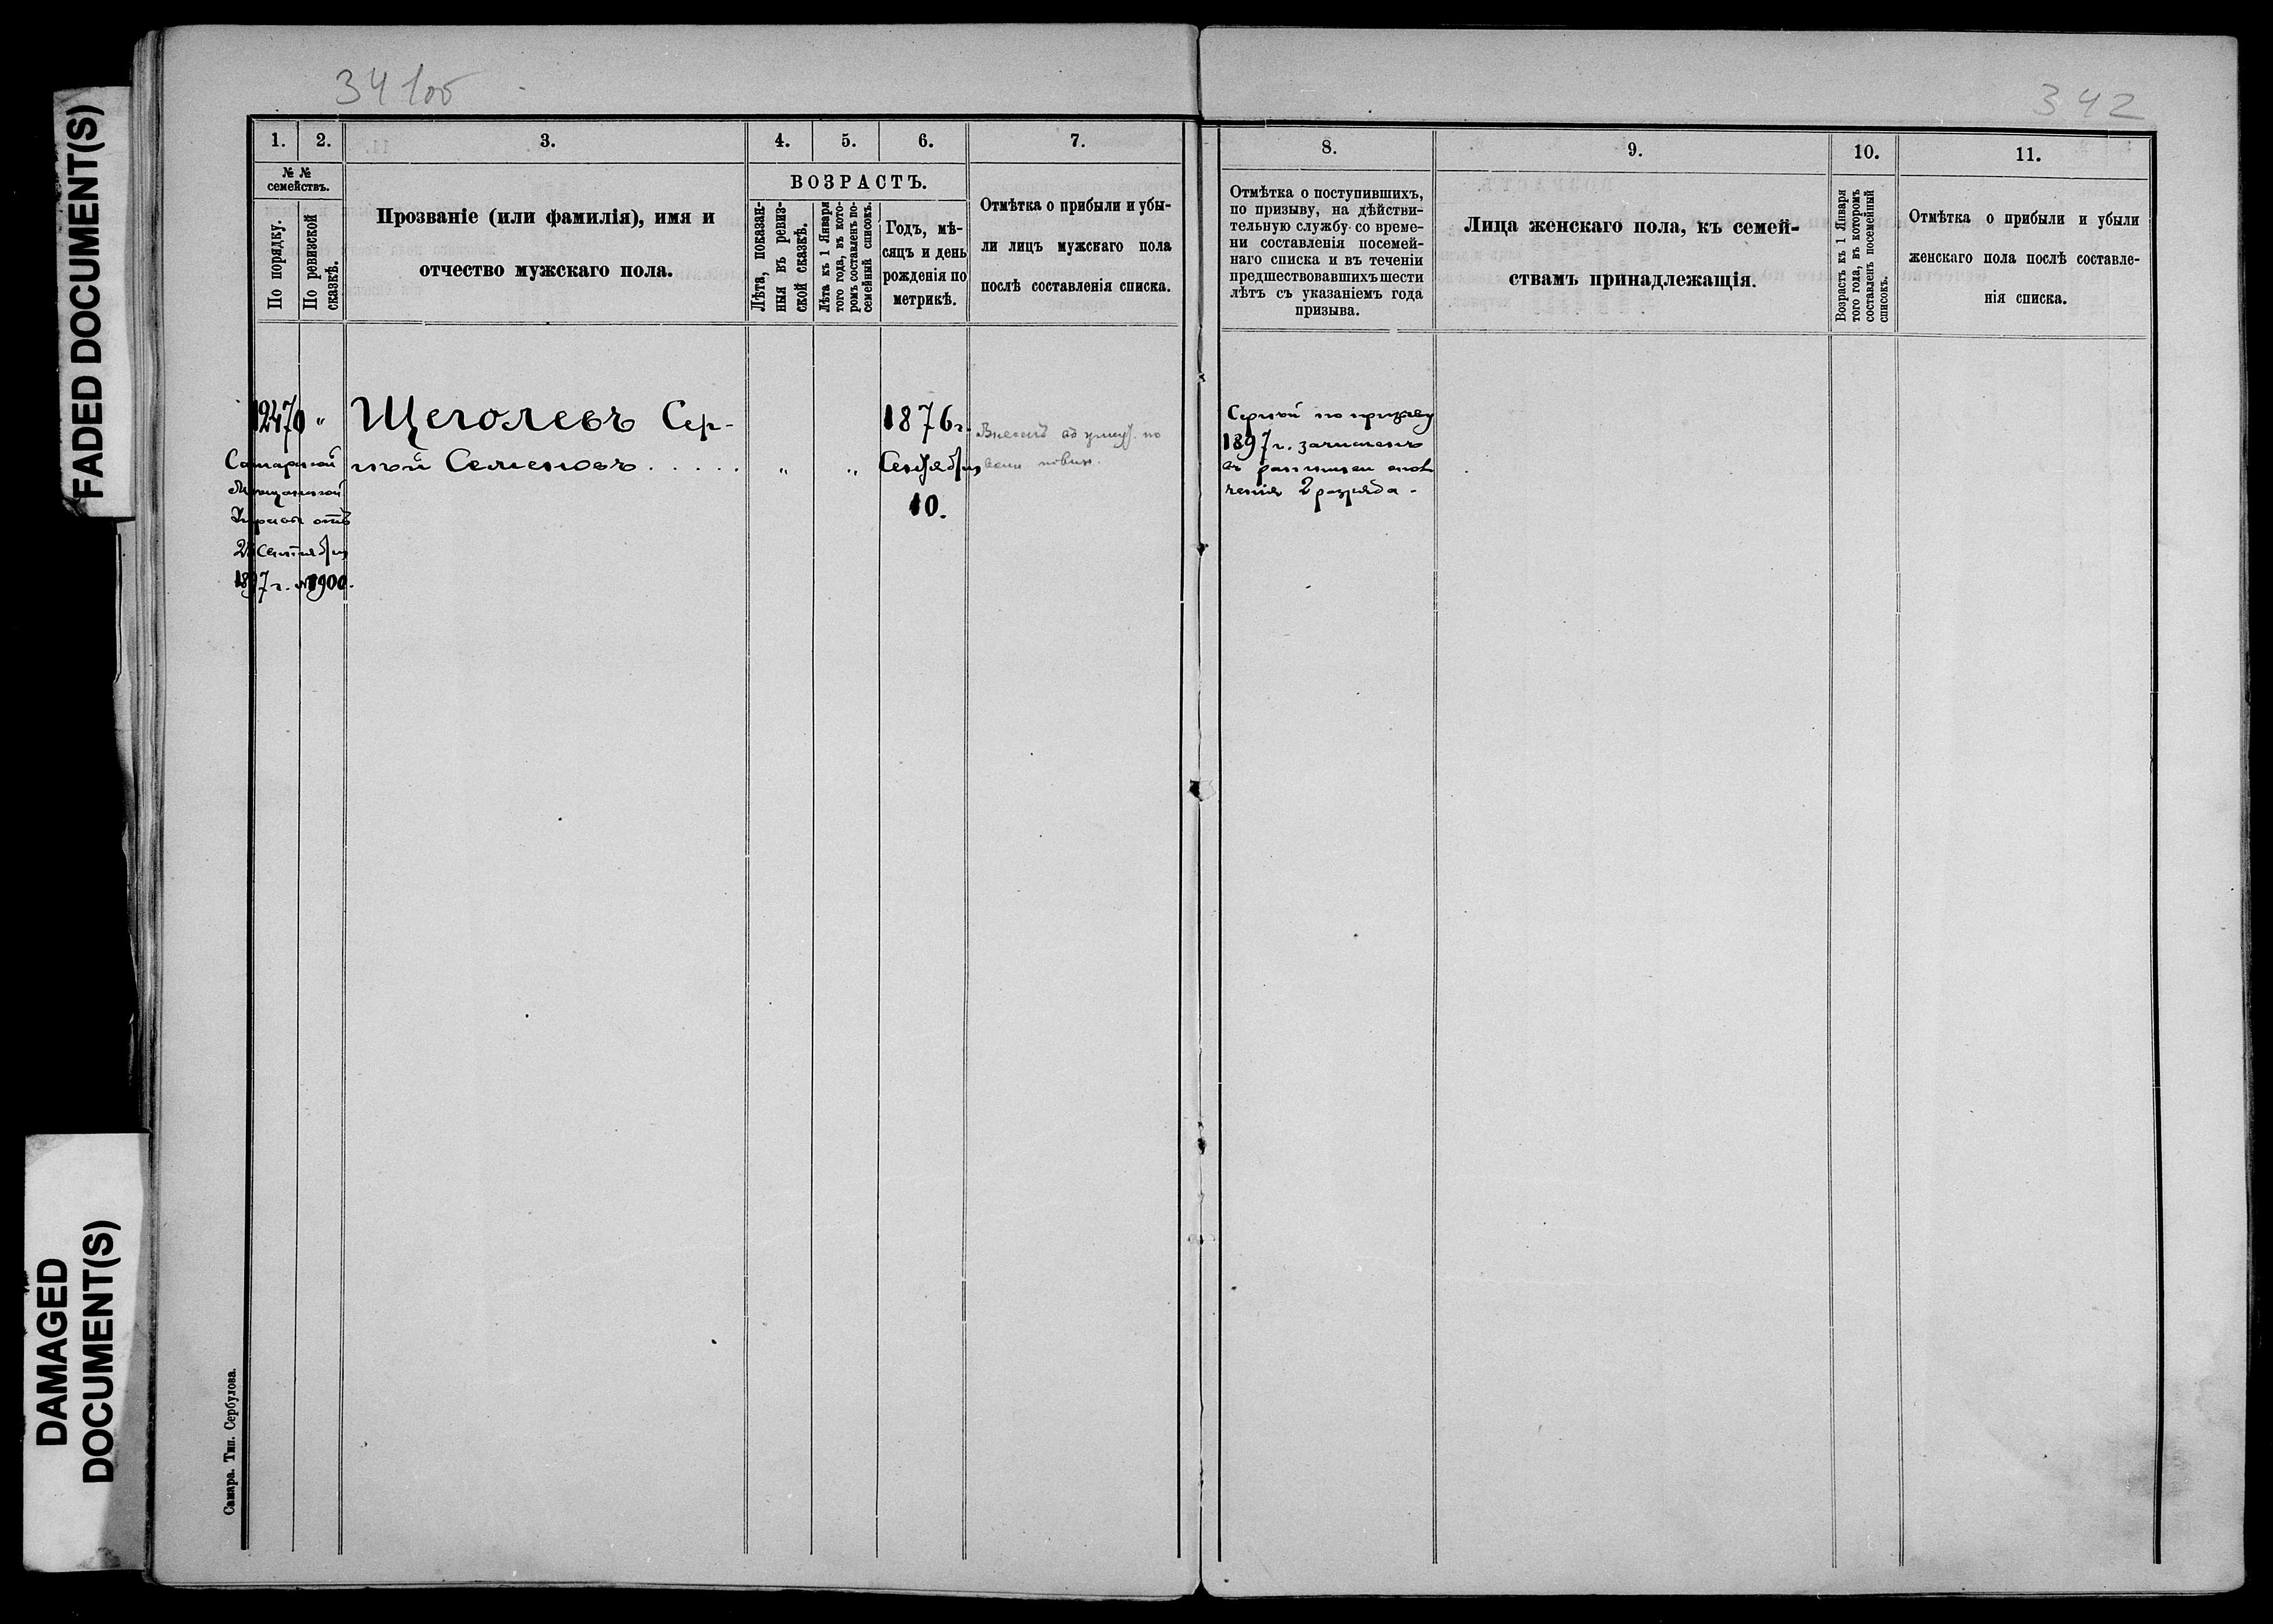 341об
342
FADED DOCUMENT(S)
DAMAGED
DOCUMENT(S)
1.
2.
3.
4.
5.
6.
7.
№ №
семействъ.
По порядку.
По ревизской
сказкѣ.
Прозваніе (или фамилія), имя и
отчество мужскаго пола.
ВОЗРАСТЪ.
Лѣта, показан-
ныя въ ревиз-
ской сказкѣ.
Лѣта къ 1 Января
того года, въ кото-
ромъ составленъ по-
семейный списокъ.
Годъ, мѣ-
сяцъ и день
рожденія по
метрикѣ.
Отмѣтка о прибыли и убы-
ли лицъ мужскаго пола
послѣ составленія списка.
12470 "
Щеголевъ Сер-
гѣй Семеновъ . . . . .
" "
1876 г.
Сентября
10.
Самарской
Мѣщанской
Управы отъ
Сентября
1897 г. № 1900.
8.
9.
10.
11.
Отмѣтка о поступившихъ,
по призыву, на дѣйстви-
тельную службу со време-
ни составленія посемей-
наго списка и въ теченіи
предшествовавшихъ шести
лѣтъ съ указаніемъ года
призыва.
Лица женскаго пола, къ семей-
ствамъ принадлежащія.
Возрастъ къ 1 Января
того года, въ которомъ
составленъ посемейный
списокъ.
Отмѣтка о прибыли и убыли
женскаго пола послѣ составле-
нія списка.
Сергѣй по призыву
1897 г. зачисленъ
въ ратники опол
ченія 2 разряда.
Самара. Тип. Сербулова.